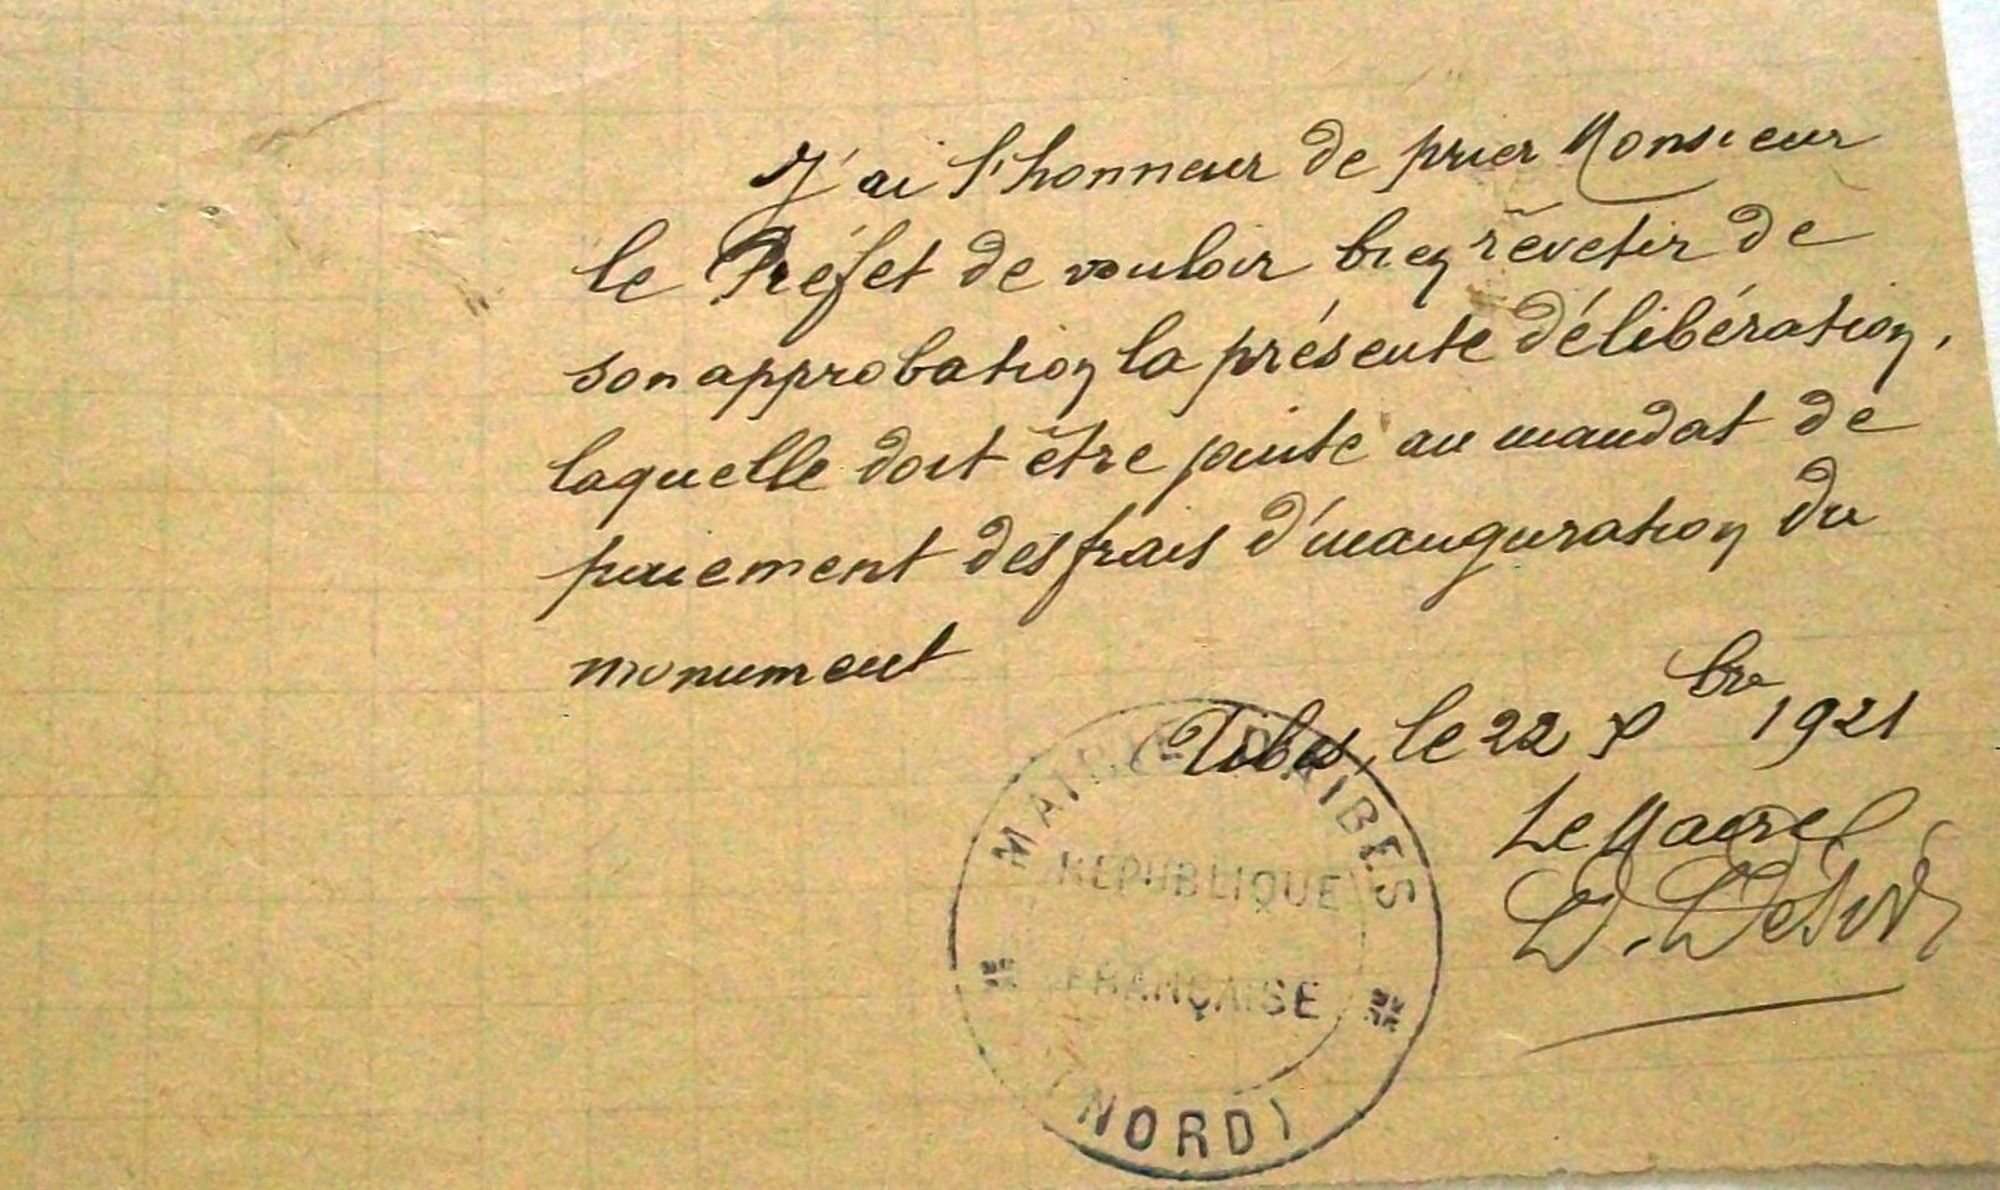 J'ai l'honneur de prier Monsieur
le Préfet de vouloir bien revêtir de
son approbation la présente délibération,
laquelle doit être jointe au mandat de
paiement des frais d'inauguration du
monument
Aibes, le 22 Xbre 1921
Le Maire
MAIRIE D'AIBES
REPUBLIQUE
FRANÇAISE
(NORD)